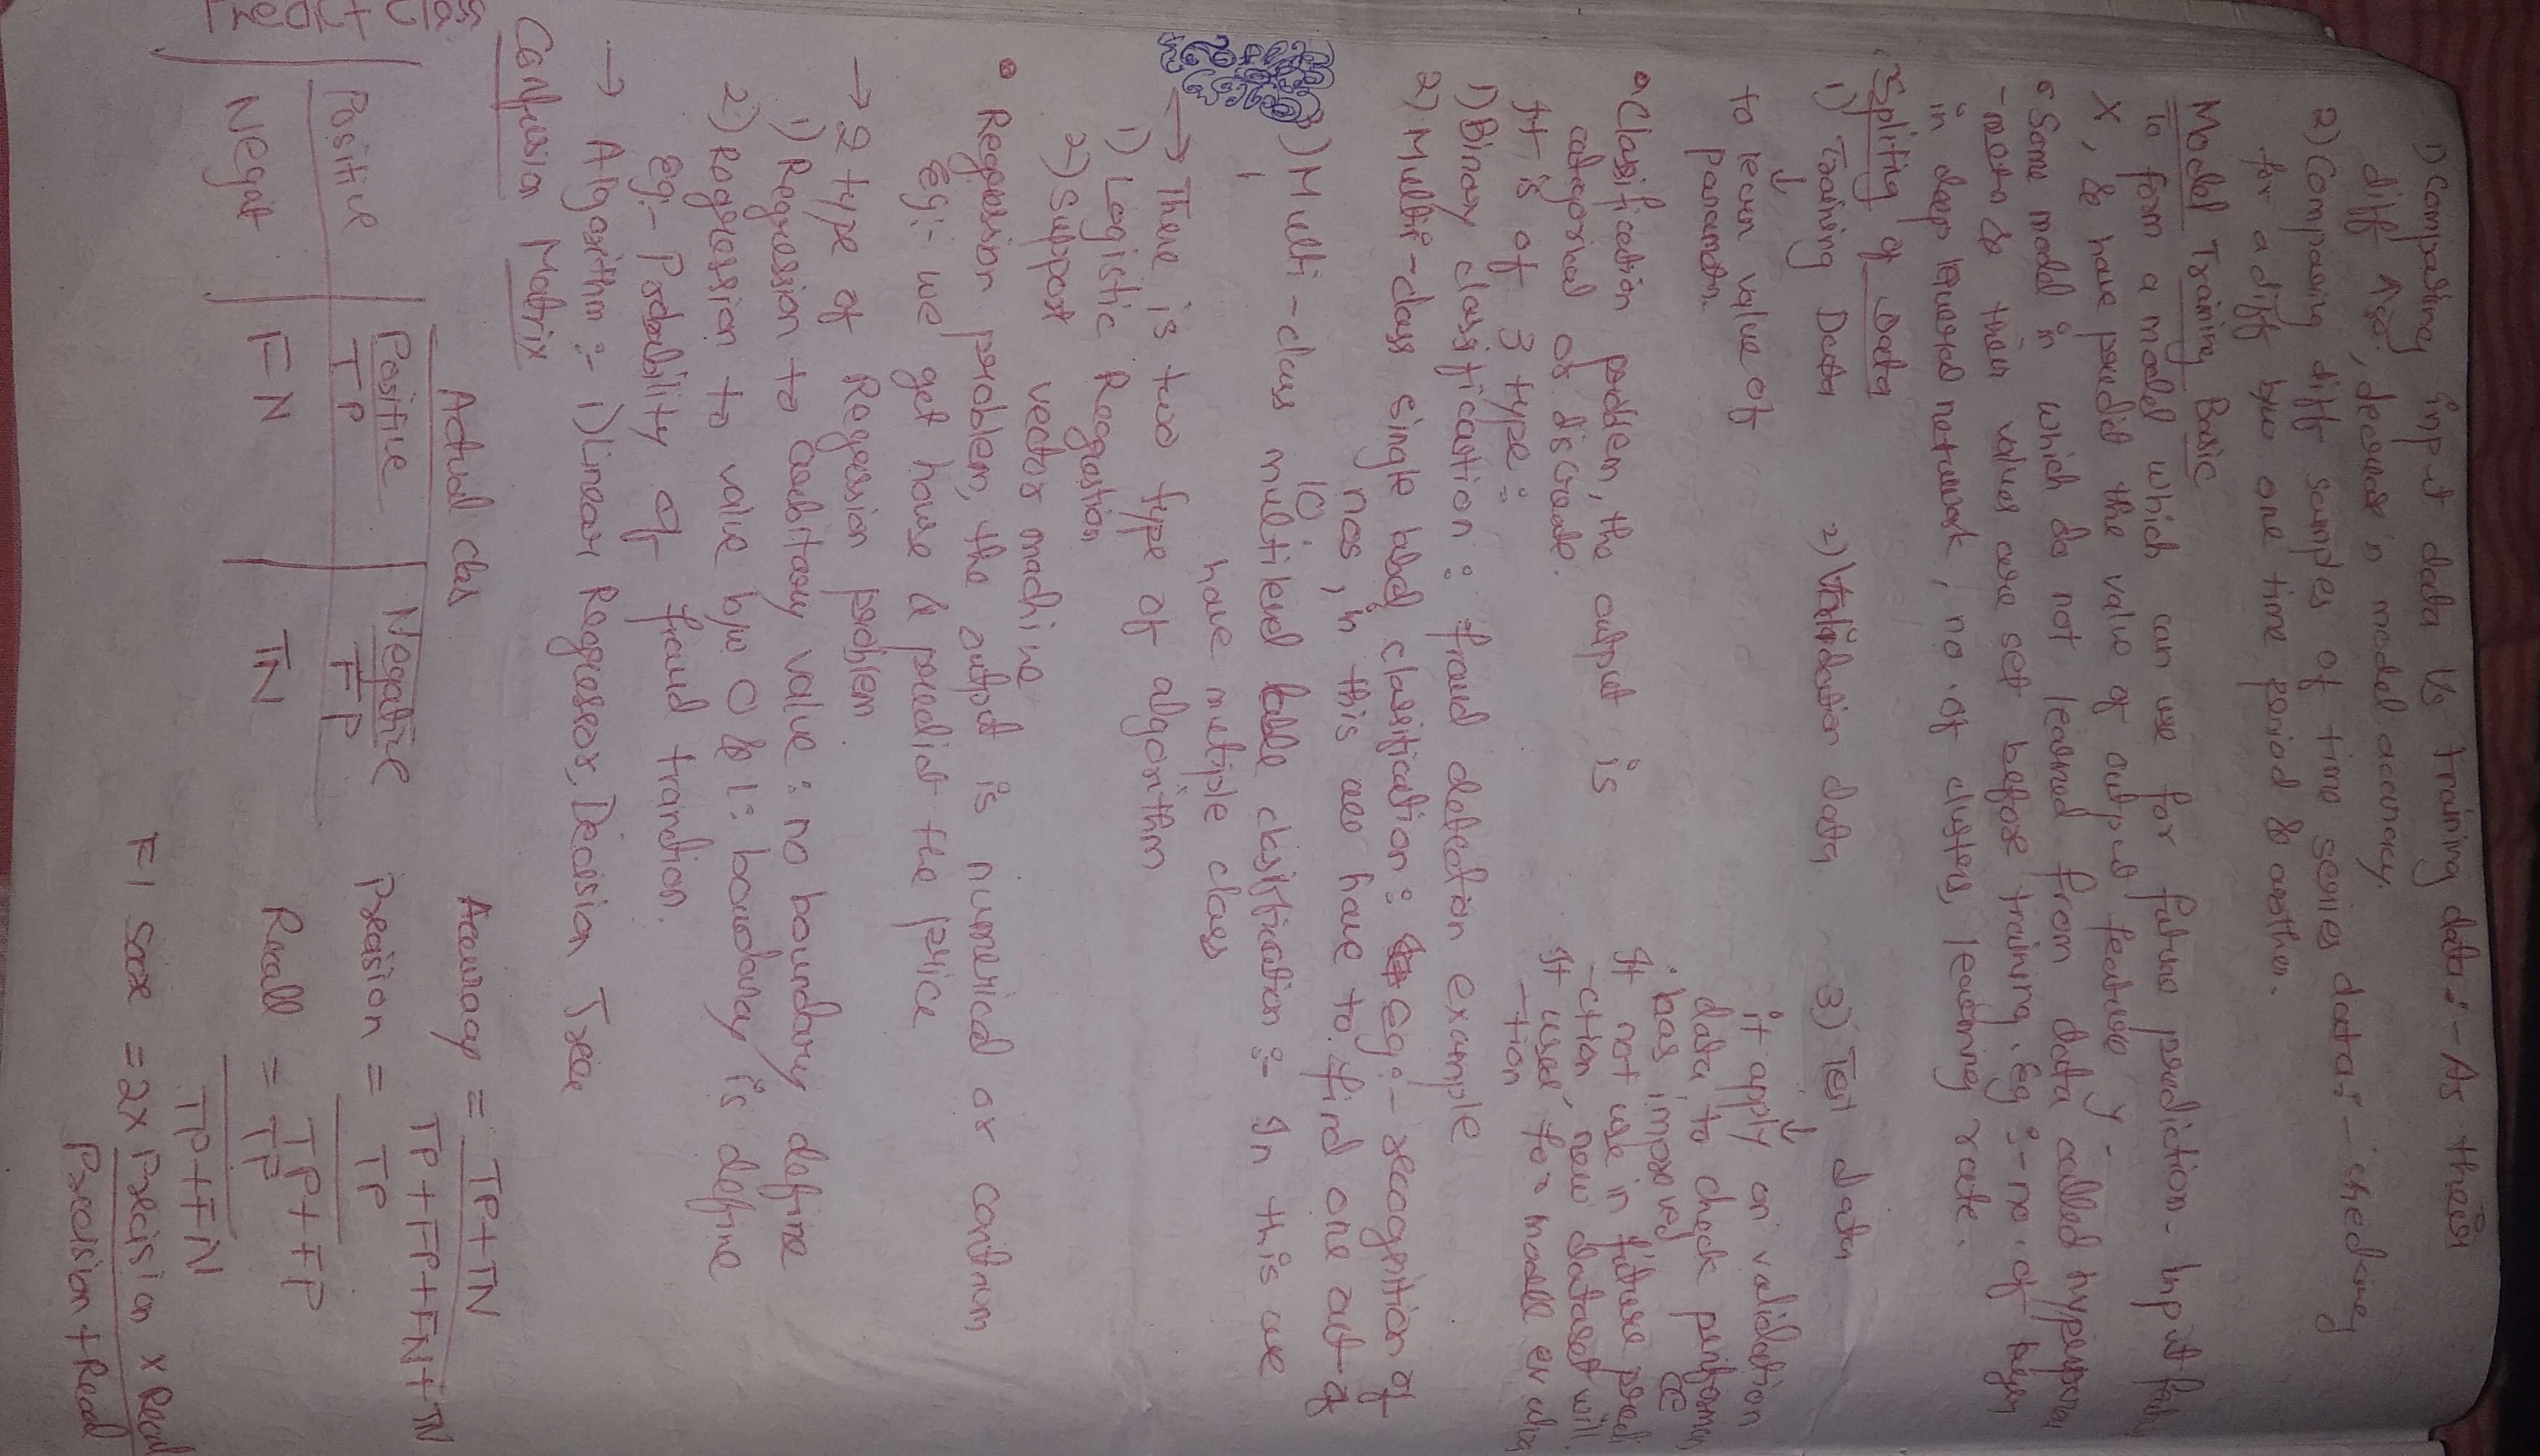 1) Comparing input data Vs training data:- As there is
diff Age, decrease in model accuracy.
2) Comparing diff samples of time series data:- checking
for a diff b/w one time period & another.
Model Training Basic
To form a model which can use for future prediction. Input
X, & have predict the value of output feature y.
• Some model in which do not learned from data called hyperpara
-meters & their values are set before training. Eg:- no. of
in deep learned network, no. of clusters, learning rate.
Spliting of data
1) Training Data 2) Validation data 3) Test data
↓ ↓
to learn value of
parameter.
it apply on validation
data to check performan
ce
has improved
It not use in future predi
-ction, new dataset will
It used for model evalua
-tion
• Classification problem, the output is
categorical or discrete.
It is of 3 type:
1) Binary classification: fraud detection example
2) Multi-class single label classification: Eg:- recognition of
10 nos, in this we have to find one out of
3) Multi-class multilevel lable classification:- In this we
have multiple class
→ There is two type of algorithm
1) Logistic Regression
2) Support vector machine
• Regression problem, the output is numerical or continum
Eg:- we get house & predict the price
→ 2 type of Regression problem
1) Regression to arbitary value: no boundary define
2) Regression to value b/w 0 & 1: boundary is define
Eg:- Probability of fraud tranction.
→ Algorithm:- 1) Linear Regressor, Decision Tree
Confusion Matrix
Actual class
Positive Negative
Positive TP FP
Negat FN TN
Accuracy = TP+TN
TP+FP+FN+TN
Precision = TP
TP+FP
Recall = TP
TP+FN
F1 score = 2x Precision x Recall
Precision + Recal